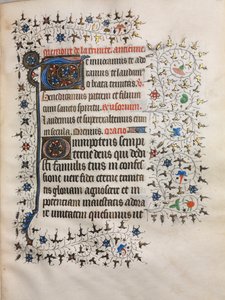 Memoire de la trinite. antienne
Te invocamus te ado
ramus te laudam
o beata trinitas. v
Benedicamus patrem et filium
cum sancto spiritu. Responsorium.
Laudemus et superexaltemus eum
in secula. Oremus. Oratio
Omnipotens sempi
terne deus qui dedi
sti famulis tuis in confes
sione vere fidei eterne trinita
tis gloriam agnoscere et in
potencia maiestatis adora
re unitatem quesumus ut